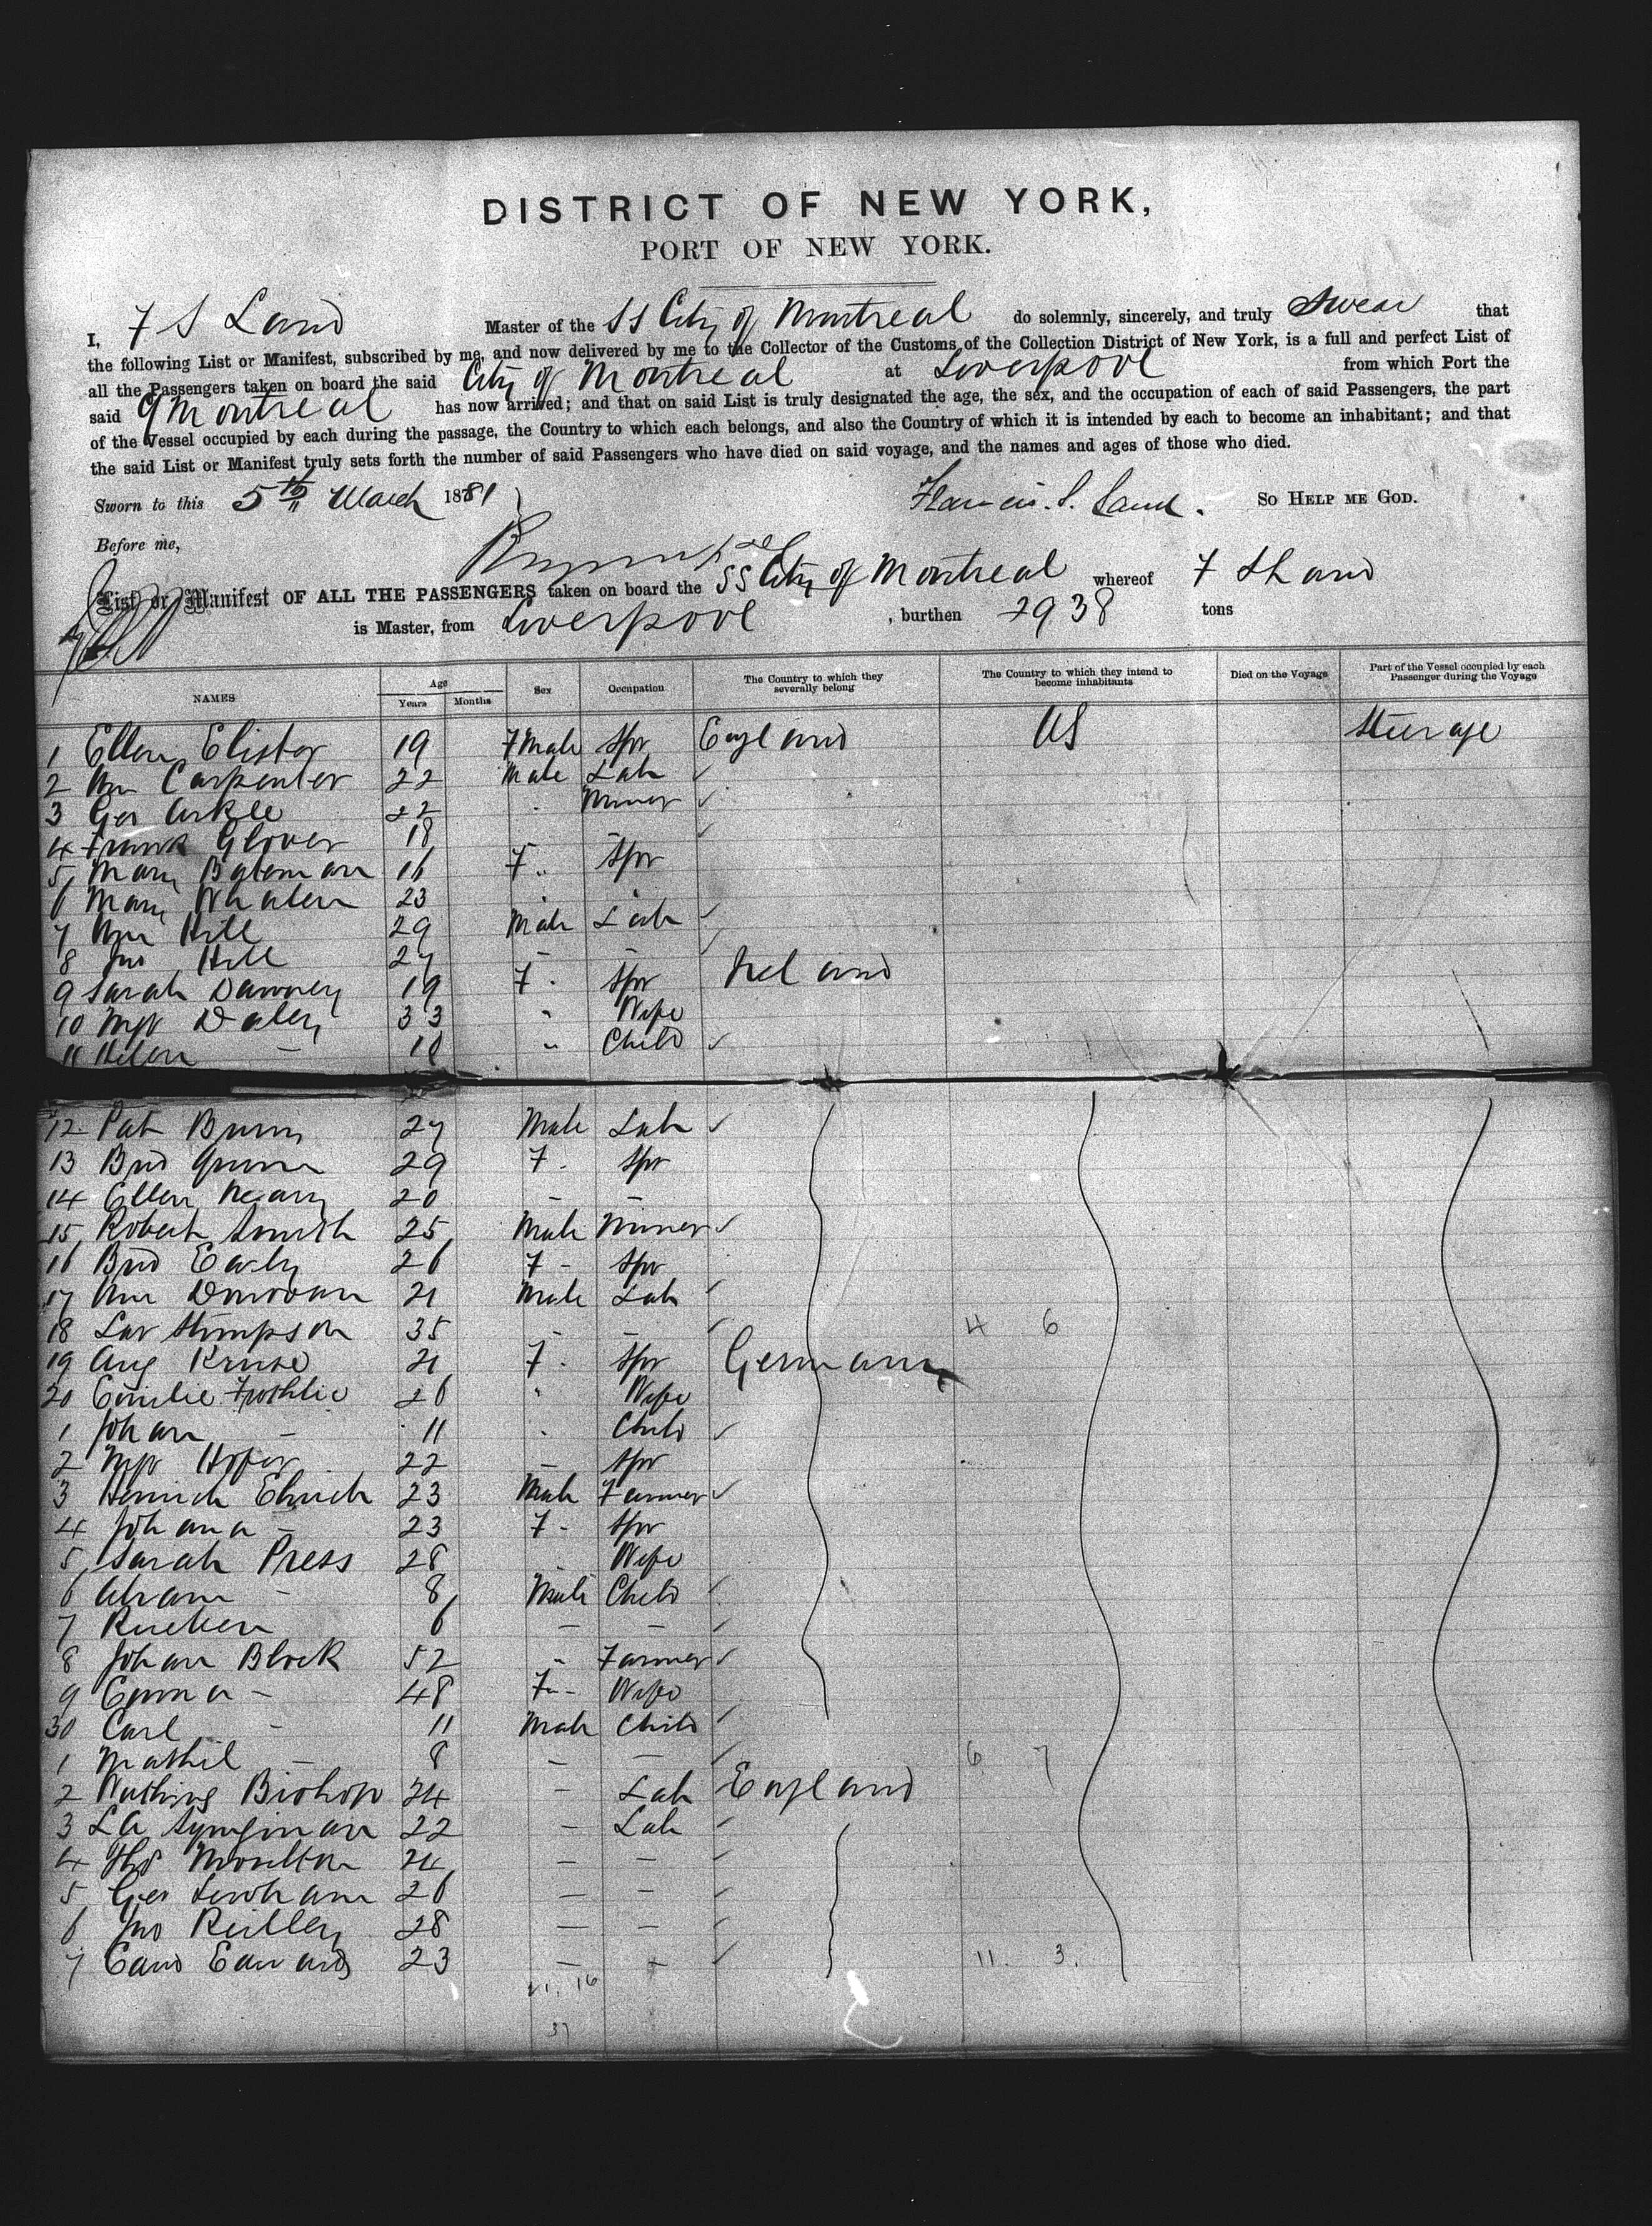 DISTRICT OF NEW YORK,
PORT OF NEW YORK.
I, F S Land Master of the SS City of Montreal do solemnly, sincerely, and truly Swear that
the following List or Manifest, subscribed by me, and now delivered by me to the Collector of the Customs of the Collection District of New York, is a full and perfect List of
all the Passengers taken on board the said City of Montreal at Liverpool from which Port the
said Montreal has now arrived; and that on said List is truly designated the age, the sex, and the occupation of each of said Passengers, the part
of the Vessel occupied by each during the passage, the Country to which each belongs, and also the Country of which it is intended by each to become an inhabitant; and that
the said List or Manifest truly sets forth the number of said Passengers who have died on said voyage, and the names and ages of those who died.
Sworn to this 5th March 1881 Francis. S. Land. SO HELP ME GOD.
Before me,
List or Manifest OF ALL THE PASSENGERS taken on board the SS City of Montreal whereof F S Land
is Master, from Liverpool , burthen 2938 tons
NAMES Age Years Months Sex Occupation The Country to which they severally belong The Country to which they intend to become inhabitants Died on the Voyage Part of the Vessel occupied by each Passenger during the Voyage
1 Ellen 19 F Male Spr England US Steerage
2 Wm Carpenter 22 Male Lab
3 Geo Arkle 22 " Miner
4 Frank Glover 18 - -
5 Mary Bateman 16 F " Spr
6 Mary Whalen 23 " "
7 Wm Hill 29 Male Lab
8 Jno Hill 27 - -
9 Sarah Dawney 19 F - Spr Ireland
10 Mgt Daley 33 " Wife
11 Helen - 10 " Child
12 Pat Burns 27 Male Lab
13 Brid 29 F - Spr
14 Ellen 20 - -
15 Robert Smith 25 Male Miner
16 Brid Early 26 F - Spr
17 Wm Donovan 21 Male Lab
18 Stimpson 35 - - 4 6
19 Aug Kruse 21 F - Spr Germany
20 Emilie 26 " Wife
1 Johan - 11 " Child
2 Mgt Hofer 22 - Spr
3 Heinrich 23 Male Farmer
4 Johana - 23 F - Spr
5 Sarah Press 28 - Wife
6 Abram - 8 Male Child
7 6 - -
8 Johan Block 52 " Farmer
9 Emma - 48 F - Wife
30 Carl - 11 Male Child
1 Mathil - 8 - - 6 7
2 Bishop 24 - Lab England
3 22 - Lab
4 Thos Moulton 24 - -
5 Geo 26 - -
6 Jno Reilley 28 - -
7 Edwards 23 - - 11. 3.
21. 16
37